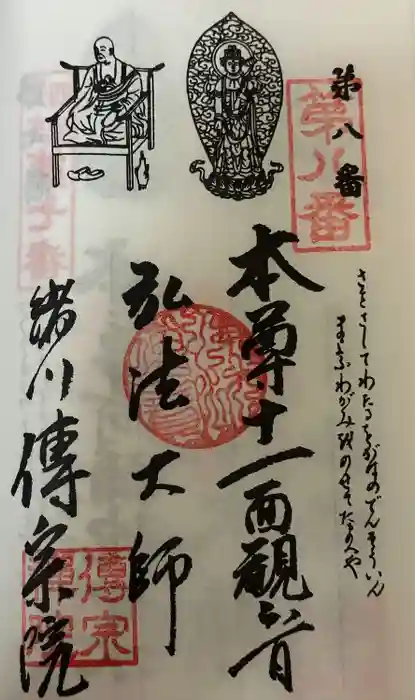 第八番
第八番
さとさしてわたるをがはのでんそういん
まふわがみをのせてたまへや
本尊十一面観音
弘法大師
緒川傳宗院
傳宗
禅院